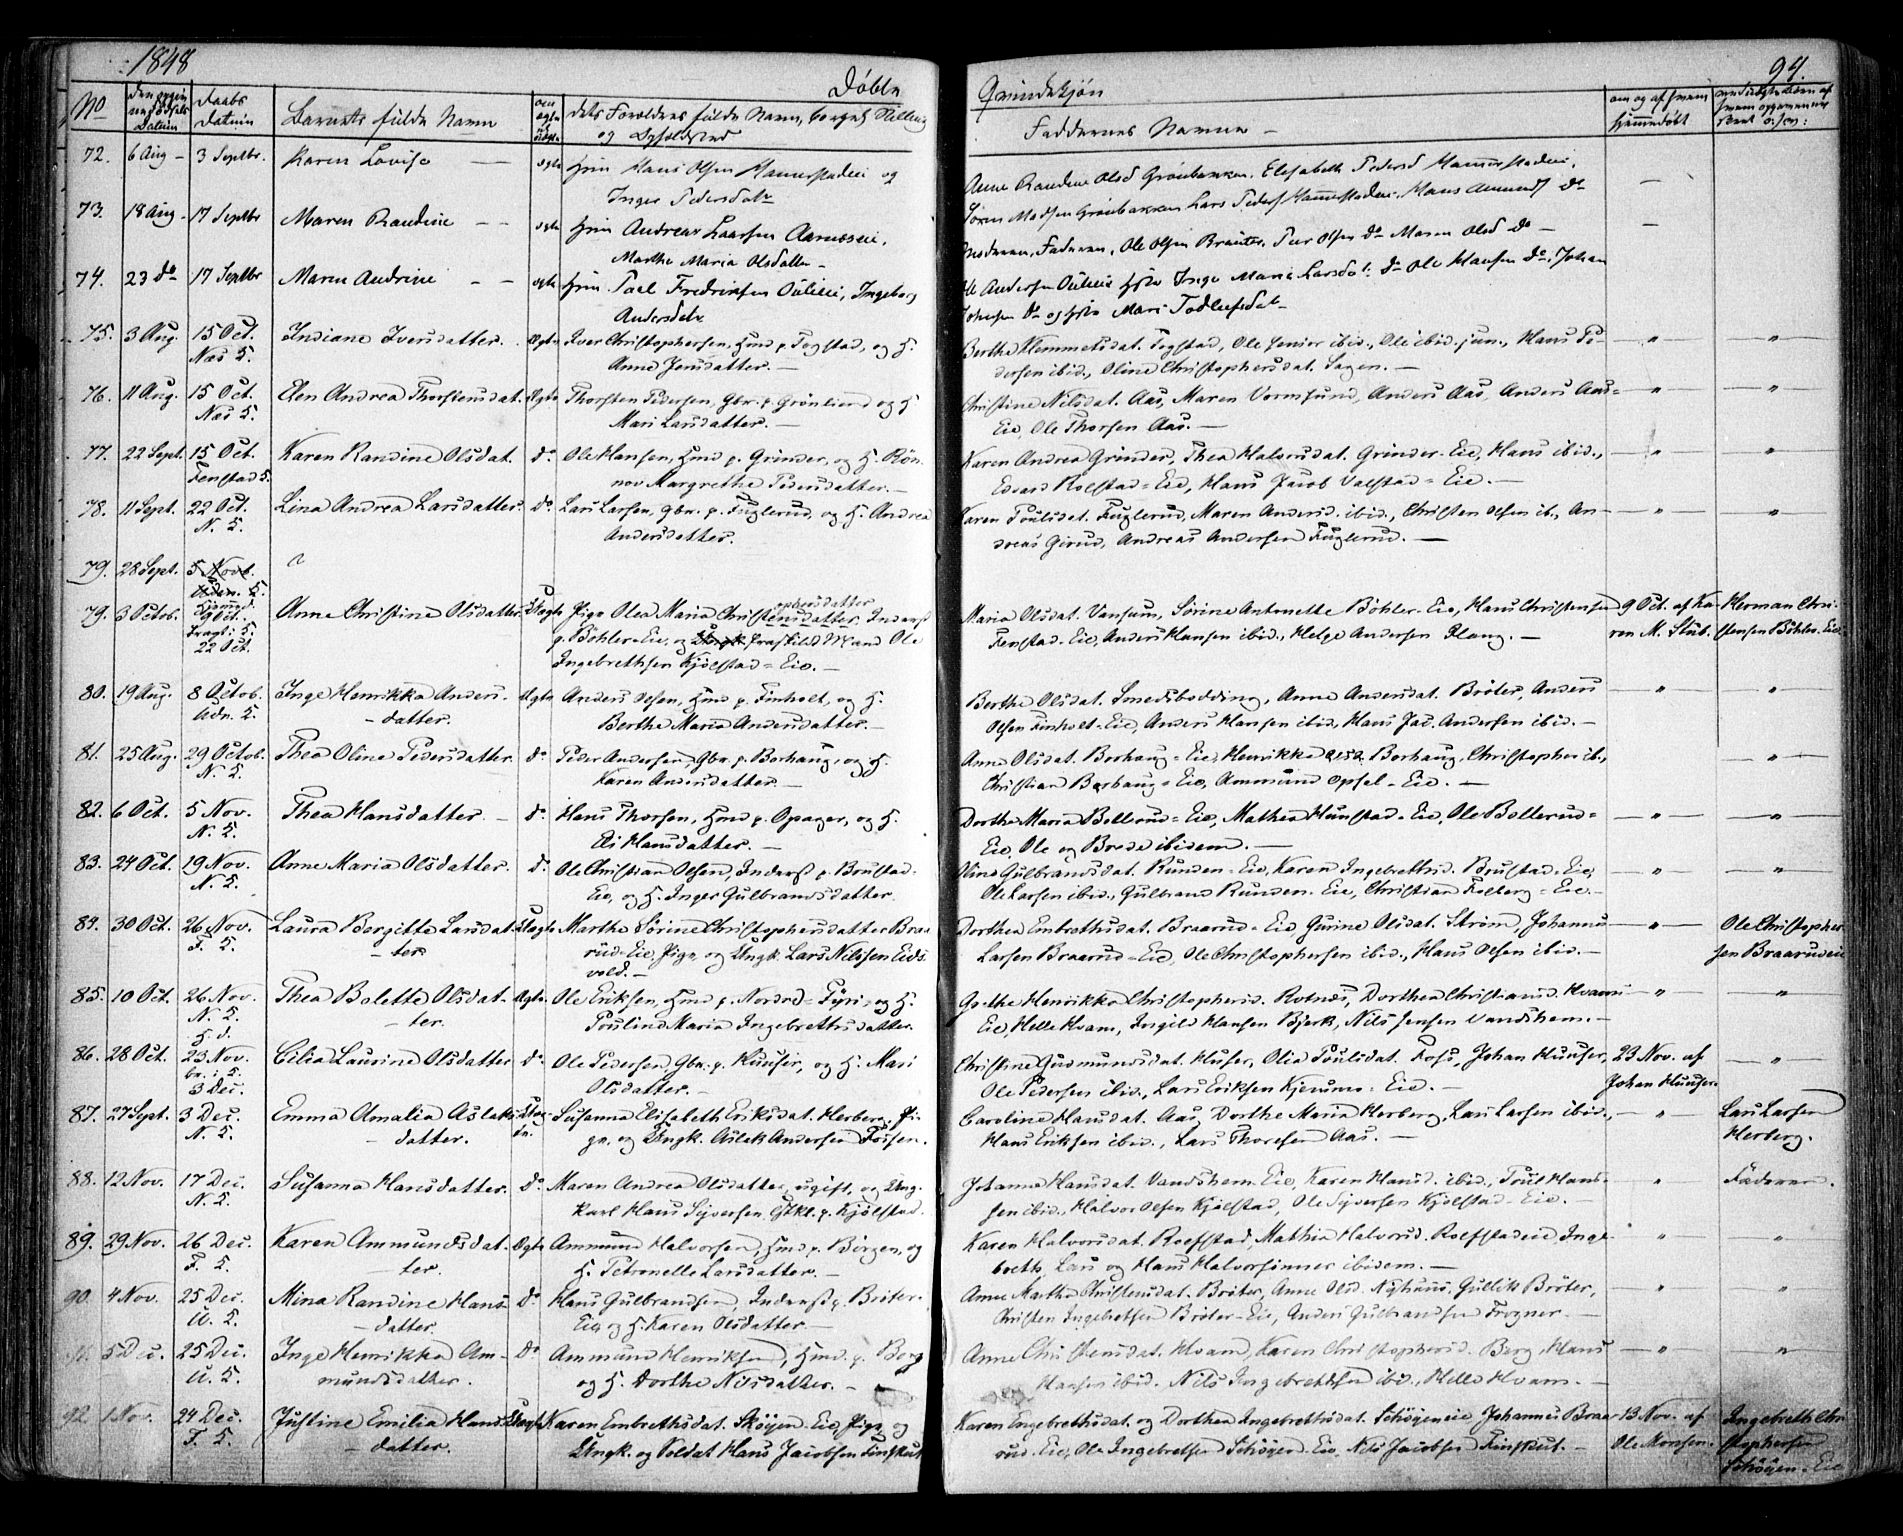 1848
Døbte
Qvindekjøn
94.
No
Daabs Datum
Barnets fulde Navn
dets Forældres fulde Navn, Borgel. Stilling og Opholdssted
Faddernes Navne
om og af hvem hjemmedøbt
72. 6 Aug 3 Septbr. Karen Lovise ægte Hans Olsen Hammerstadeie og
Inger Pedersdatr
Anne Randine Olsd Grønbakken, Elisabeth Pedersd Hammerstadeie,
Søren Madsen Grønbakken Lars Peders Hammerstadeie, Hans Amunds Do
73. 18 Aug 17 Septbr Maren Randine ægte Andreas Laarsen Aarnæseie,
Marthe Maria Olsdatter
Moderen, Faderen, Ole Olsen Brauter, Per Olsen Do Maren Olsd Do
74. 23 Do 17 Septbr Maren Andrine ægte Poel Fredriksen Oulieie, Ingeborg
Andersdatr
Ole Andersen Ouliei Inge Marie Larsdat. Do Ole Hansen Do, Johan
Johnsen Do og Mari Todlefsdat
75. 3 Aug. 15 Oct. Indiane Iversdatter. Ægte Iver Christophersen, Hmd p. Fogstad, og H.
Næs K. Anne Jensdatter.
Berthe Klemmetsdat. Fogstad, Ole senior ibid., Ole ibid. jun., Hans Pe-
dersen ibid., Oline Christophersdat. Sagen.
76. 11 Aug. 15 Oct. Elen Andrea Thorstensdat. Ægte Thorsten Pedersen, Gbr. p. Grønlund og H.
Næs K. Mari Larsdatter.
Christine Nilsdat. Aas, Maren Vormsund, Anders Aas, Anders Aas-
Eie, Ole Thorsen Aas.
77. 22 Sept. 15 Oct. Karen Randine Olsdat. Do Ole Hansen, Hmd p. Grinder, og H. Røn-
Fenstad K. nov Margrethe Pedersdatter.
Karen Andrea Grinder, Thea Halvorsdat. Grinder-Eie, Hans ibid.,
Edvard Rolstad-Eie, Hans Jacob Valstad-Eie.
78. 11 Sept. 22 Oct. Lina Andrea Larsdatter Do Lars Larsen, Gbr. p. Fuglerud, og H. Andrea
N. K. Andersdatter.
Karen Poulsdat. Fuglerud, Maren Andersd. ibid., Christen Olsen ib., An-
dreas Girud, Andreas Andersen Fuglerud.
79. 28 Sept. 5 Nov.
79. 3 Octob. 9 Oct. Anne Christine Olsdatter Uægte Pige Olea Maria Christophersdatter Inderst
22 Oct. p. Bøhler-Eie, og fraskildt Mand Ole
Ingebrethsen Kjølstad-Eie.
Maria Olsdat. Vansum, Sørine Antonette Bøhler-Eie, Hans Christensen
Fenstad-Eie, Anders Hansen ibid., Helge Andersen Plang.
9 Oct. af Ka-
ren M. Stub.
Herman Chri-
stensen Bøhler-Eie
80. 19 Aug. 8 Octob. Inge Henrikka Anders- Ægte Anders Olsen, Hmd p. Finholt, og H.
datter. Berthe Maria Andersdatter.
Berthe Olsdat. Smedsbodding, Anne Andersdat. Brøter, Anders
Olsen Finholt-Eie, Anders Hansen ibid., Hans Jac. Andersen ibid.
81. 25 Aug. 29 Octob. Thea Oline Pedersdatter. Do Peder Andersen, Gbr. p. Borhaug, og H.
N. K. Karen Andersdatter.
Anne Olsdat. Borhaug-Eie, Henrikka Borhaug, Christopher ib.,
Christian Borhaug-Eie, Ammund Opsal-Eie.
82. 6 Oct. 5 Nov. Thea Hansdatter. Do Hans Thorsen, Hmd p. Opager, og H.
N. K. Eli Hansdatter.
Dorthe Maria Bollerud-Eie, Mathea Hunstad-Eie, Ole Bollerud-
Eie, Ole og Brede ibidem.
83. 24 Oct. 19 Nov. Anne Maria Olsdatter. Do Ole Christian Olsen, Inderst p. Brustad-
N. K. Eie, og H. Inger Gulbrandsdatter.
Gulbrandsdat. Runden-Eie, Karen Ingebrethsd. Brustad-Eie,
Ole Larsen ibid., Gulbrand Runden-Eie, Christian Folberg-Eie.
84. 30 Oct. 26 Nov. Laura Bergitte Larsdat- Uægte Marthe Sørine Christophersdatter Braa-
F. K. ter. rud-Eie, Pige, og Ungk. Lars Nilssen Eids-
vold.
Dorthea Embrethsdat. Braarud-Eie, Gurine Olsdat. Strøm, Johannes
Larsen Braarud-Eie, Ole Christophersen ibid., Hans Olsen ibid.
Ole Christopher-
sen Braarudeie
85. 10 Oct. 26 Nov. Thea Bolette Olsdat- Ægte Ole Eriksen, Hmd p. Nordre-Fyri, og H.
N. K. ter. Pouline Maria Ingebrethsdatter.
Grethe Henrikka Christophersd. Rotnæs, Dorthea Christiansd. Hvam-
Eie, Helle Hvam, Ingild Hansen Bjerk, Nils Jensen Vandshem.
86. 28 Oct. 23 Nov. Cilia Laurine Olsdatter Do Ole Pedersen, Gbr. p. Huuser, og H. Mari
3 Dec. Olsdatter.
Christine Gudmundsdat. Huser, Olia Poulsdat. Fos, Johan Huuser,
Ole Pedersen ibid., Lars Eriksen Kjerumo-Eie.
23 Nov. af
Johan Huuser.
87. 27 Sept. 3 Dec. Emma Amalia Aslaks- Uæg- Susanna Elisabeth Eriksdat. Herberg, Pi-
N. K. datter. te. ge, og Ungk. Aslak Andersen Fossen.
Caroline Hansdat. Aas, Dorthe Maria Herberg, Lars Larsen ibid.,
Hans Eriksen ibid., Lars Thoresen Aas.
Lars Larsen
Herberg.
88. 12 Nov. 17 Dec. Susanna Hansdatter. Do Maren Andrea Olsdatter, ugift, og Ung-
N. K. karl Hans Syversen, p. Kjølstad.
Johanna Hansdat. Vandshem-Eie, Karen Hansd. ibid., Poul Han-
sen ibid., Halvor Olsen Kjølstad, Ole Syversen Kjølstad-Eie.
Faderen.
89. 29 Nov. 26 Dec. Karen Ammundsdat- Ægte Ammund Halvorsen, Hmd p. Børgen, og
F. K. ter. H. Petronelle Larsdatter.
Karen Halvorsdat. Rolfstad, Mathia Halvorsd. Rolfstadeie, Inge-
breth, Lars og Hans Halvorsønner ibidem.
90. 4 Nov. 25 Dec. Mina Randine Hans- Do Hans Gulbrandsen, Inderst p. Brøter-
U. K. datter. Eie, og H. Karen Olsdatter.
Anne Marthe Christensdat. Brøter, Anne Olsd. Nyhuus, Gullik Brøter,
Christen Ingebretsen Brøter-Eie, Anders Gulbrandsen Frogner.
91. 5 Dec. 25 Dec. Inge Henrikka Am- Do Ammund Henriksen, Hmd p. Berg
U. K. mundsdatter. og H. Dorthe Nilsdatter.
Anne Christensdat. Hvam, Karen Christophersd. Berg, Hans
Hansen ibid. Nils Ingebrethsen ibid., Helle Hvam.
92. 1 Nov. 24 Dec. Justine Emilia Hans- Uægte Karen Embrethsdat. Skøyen-Eie, Pige og
F. K. datter. Ungk. og Soldat Hans Jacobsen Finskut
Karen Ingebrethsdat. og Dorthea Ingebrethsdat. Schøyeneie, Johannes Braa-
rud-Eie, Ole Ingebretsen Schøyen-Eie, Nils Jacobsen Finskut.
13 Nov. af
Ole Monsen.
Ingebreth Chri-
stophersen
Schøyen-Eie